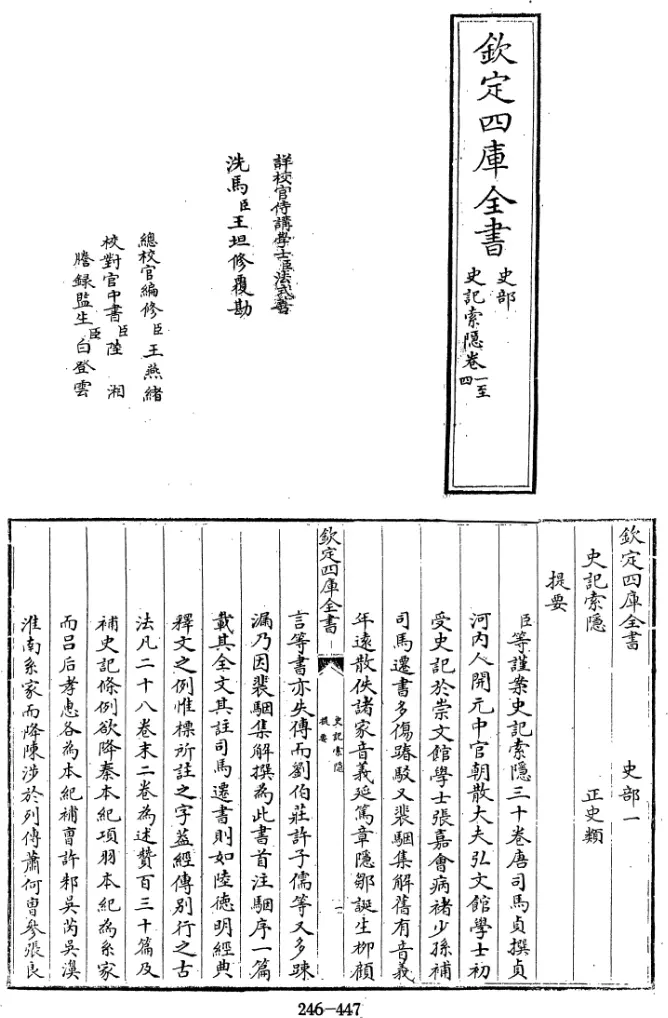 欽定四庫全書
史部
史記索隱卷一至四
詳校官侍講學士臣法式善
洗馬臣王坦修覆勘
總校官編修臣王燕緒
校對官中書臣陸湘
謄錄監生臣白登雲
欽定四庫全書
史部一
史記索隱
正史類
提要
臣等謹案史記索隱三十卷唐司馬貞撰貞
河内人開元中官朝散大夫弘文館學士初
受史記於崇文館學士張嘉會病褚少孫補
司馬遷書多傷踳駁又裴駰集解舊有音義
年遠散佚諸家音義延篤章隱鄒誕生柳顧
欽定四庫全書
史記索隱
提要
一
言等書亦失傳而劉伯莊許子儒等又多踈
漏乃因裴駰集解撰為此書首注駰序一篇
載其全文其註司馬遷書則如陸徳明經典
釋文之例惟標所註之字葢經傳別行之古
法凡二十八卷末二卷為述贊百三十篇及
補史記條例欲降秦本紀項羽本紀為系家
而吕后孝惠各為本紀補曹許邾吳芮吳濞
淮南系家而降陳涉於列傳蕭何曹參張良
246-447